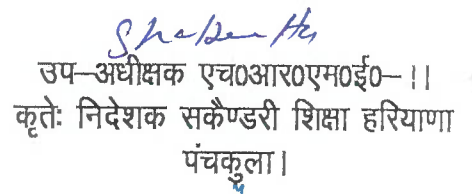 उप–अधीक्षक एच0आर0एम0ई0–।।
कृतेः निदेशक सकैण्डरी शिक्षा हरियाणा
पंचकुला।